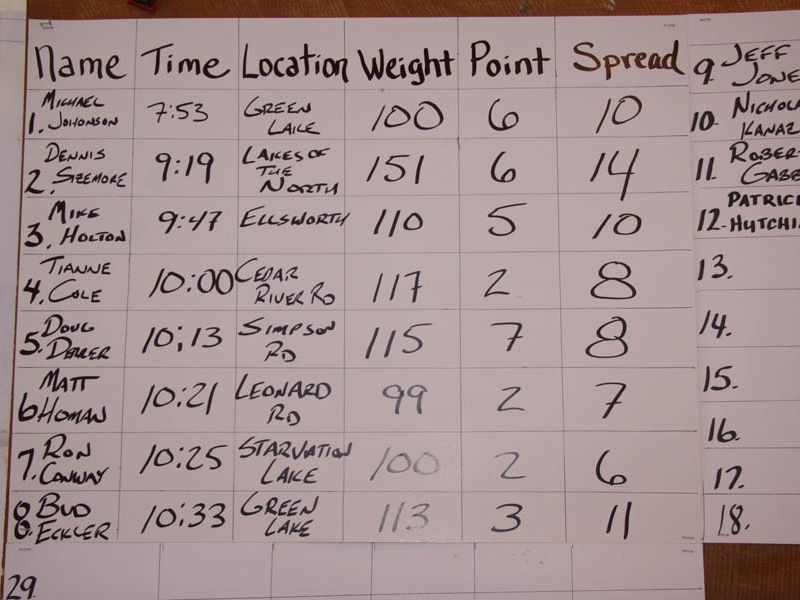 Name Time Location Weight Point Spread
1. Michael Johonson 7:53 Green Lake 100 6 10
2. Dennis Sizemore 9:19 Lakes of the North 151 6 14
3. Mike Holton 9:47 Ellsworth 110 5 10
4. Tianne Cole 10:00 Cedar River Rd 117 2 8
5. Doug 10:13 Simpson Rd 115 7 8
6 Matt Homan 10:21 Leonard Rd 99 2 7
7. Ron Conway 10:25 Starvation Lake 100 2 6
8 Bud Eckler 10:33 Green Lake 113 3 11
29.
9 Jeff Jone
10. Nichola Kanaz
11. Rober Gabb
12. Patrici Hutchi
13.
14.
15.
16.
17.
18.